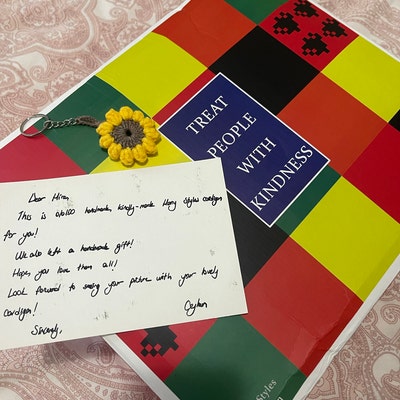 TREAT
PEOPLE
WITH
KINDNESS
Dear
This is handmade, kindly-made Harry Styles cardigan
for you!
We also left a handmade gift!
Hope you love them all!
Look forward to seeing your picture with your lovely
cardigan!
Sincerely,
Ceyhan
Styles